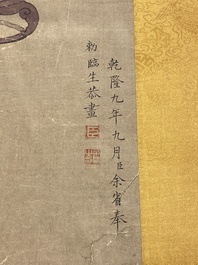 乾隆九年九月臣余省奉
勑臨生恭畫
臣